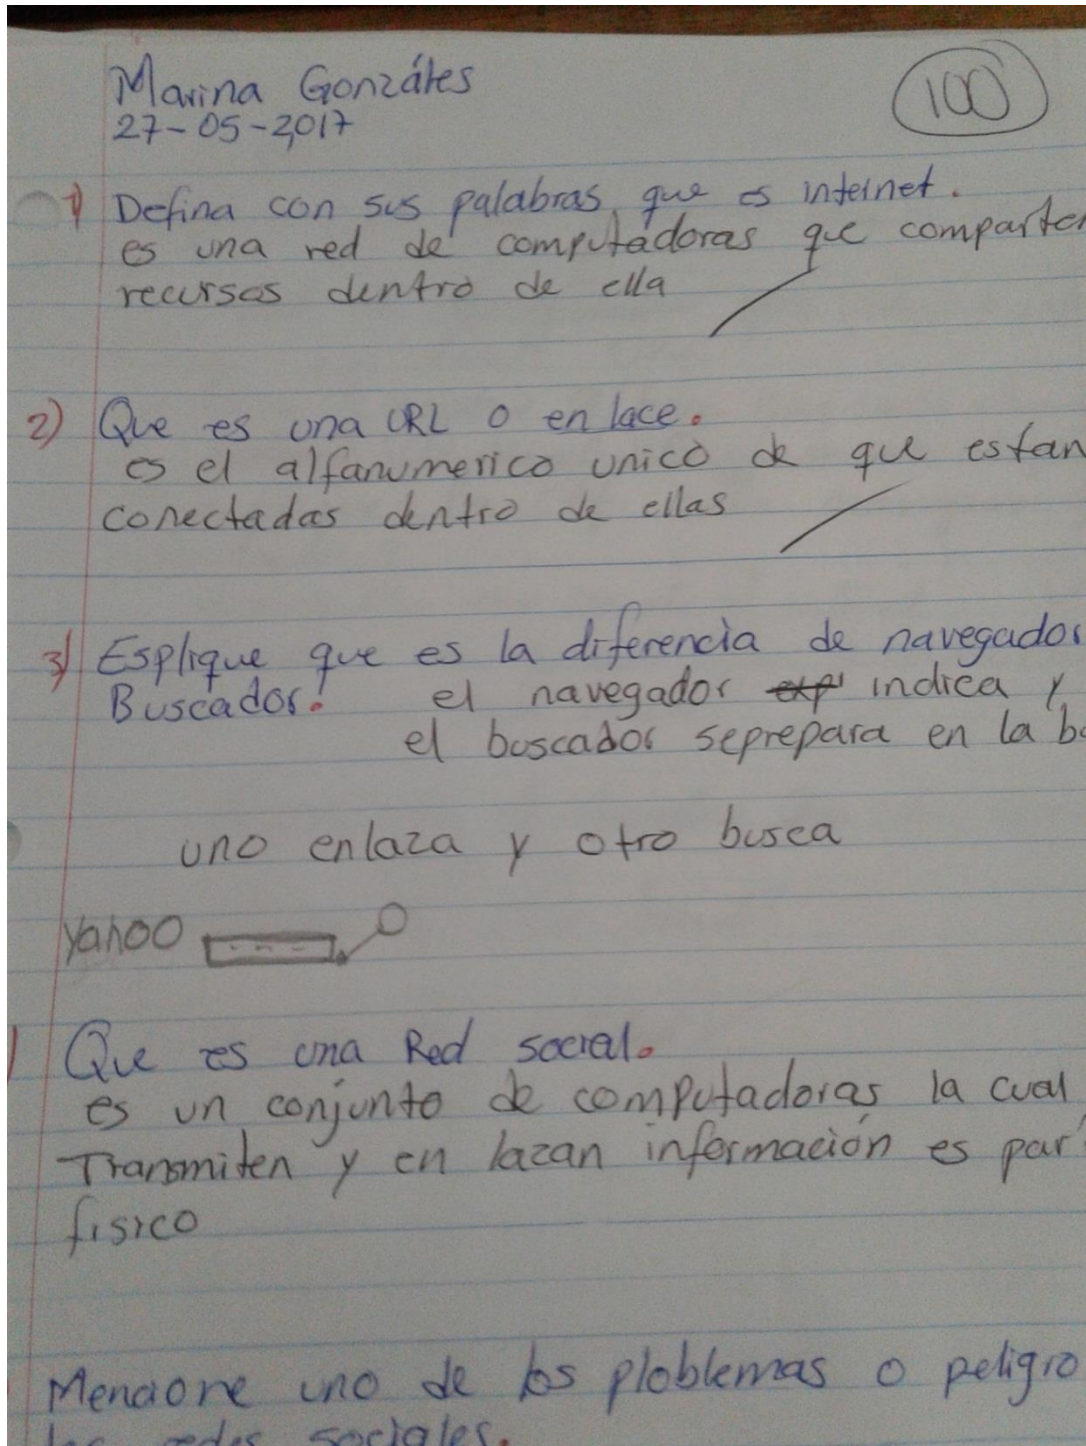 Marina Gonzáles
100
27-05-2017
1) Defina con sus palabras que es internet.
es una red de computadoras que comparten
recursos dentro de ella
2) Que es una URL o en lace.
es el alfanumerico unico de que estan
conectadas dentro de ellas
3) Esplique que es la diferencia de navegador
Buscador. el navegador indica y
el buscador seprepara en la
uno enlaza y otro busca
Yahoo
Que es una Red social.
es un conjunto de computadoras la cual
Transmiten y en lazan información es par
fisico
Mencione uno de los ploblemas o peligro
redes sociales.